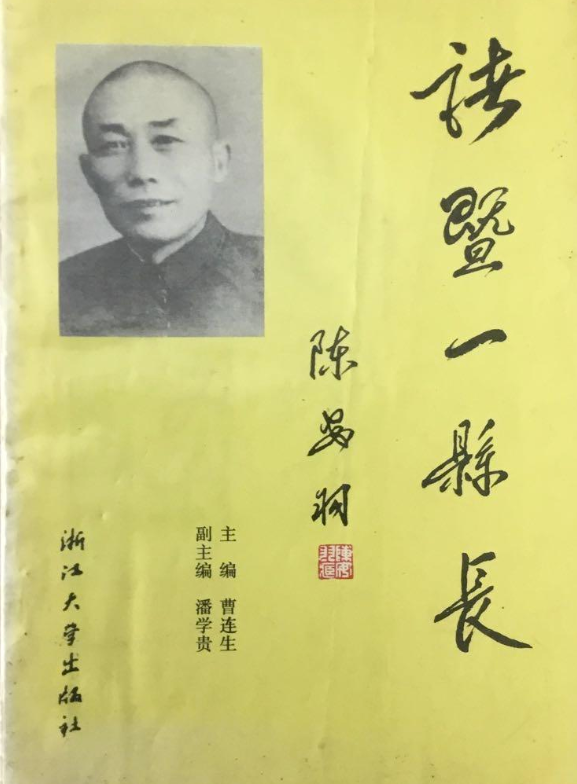 诸暨一縣長
陈安羽
主编 曹连生
副主编 潘学贵
浙江大学出版社